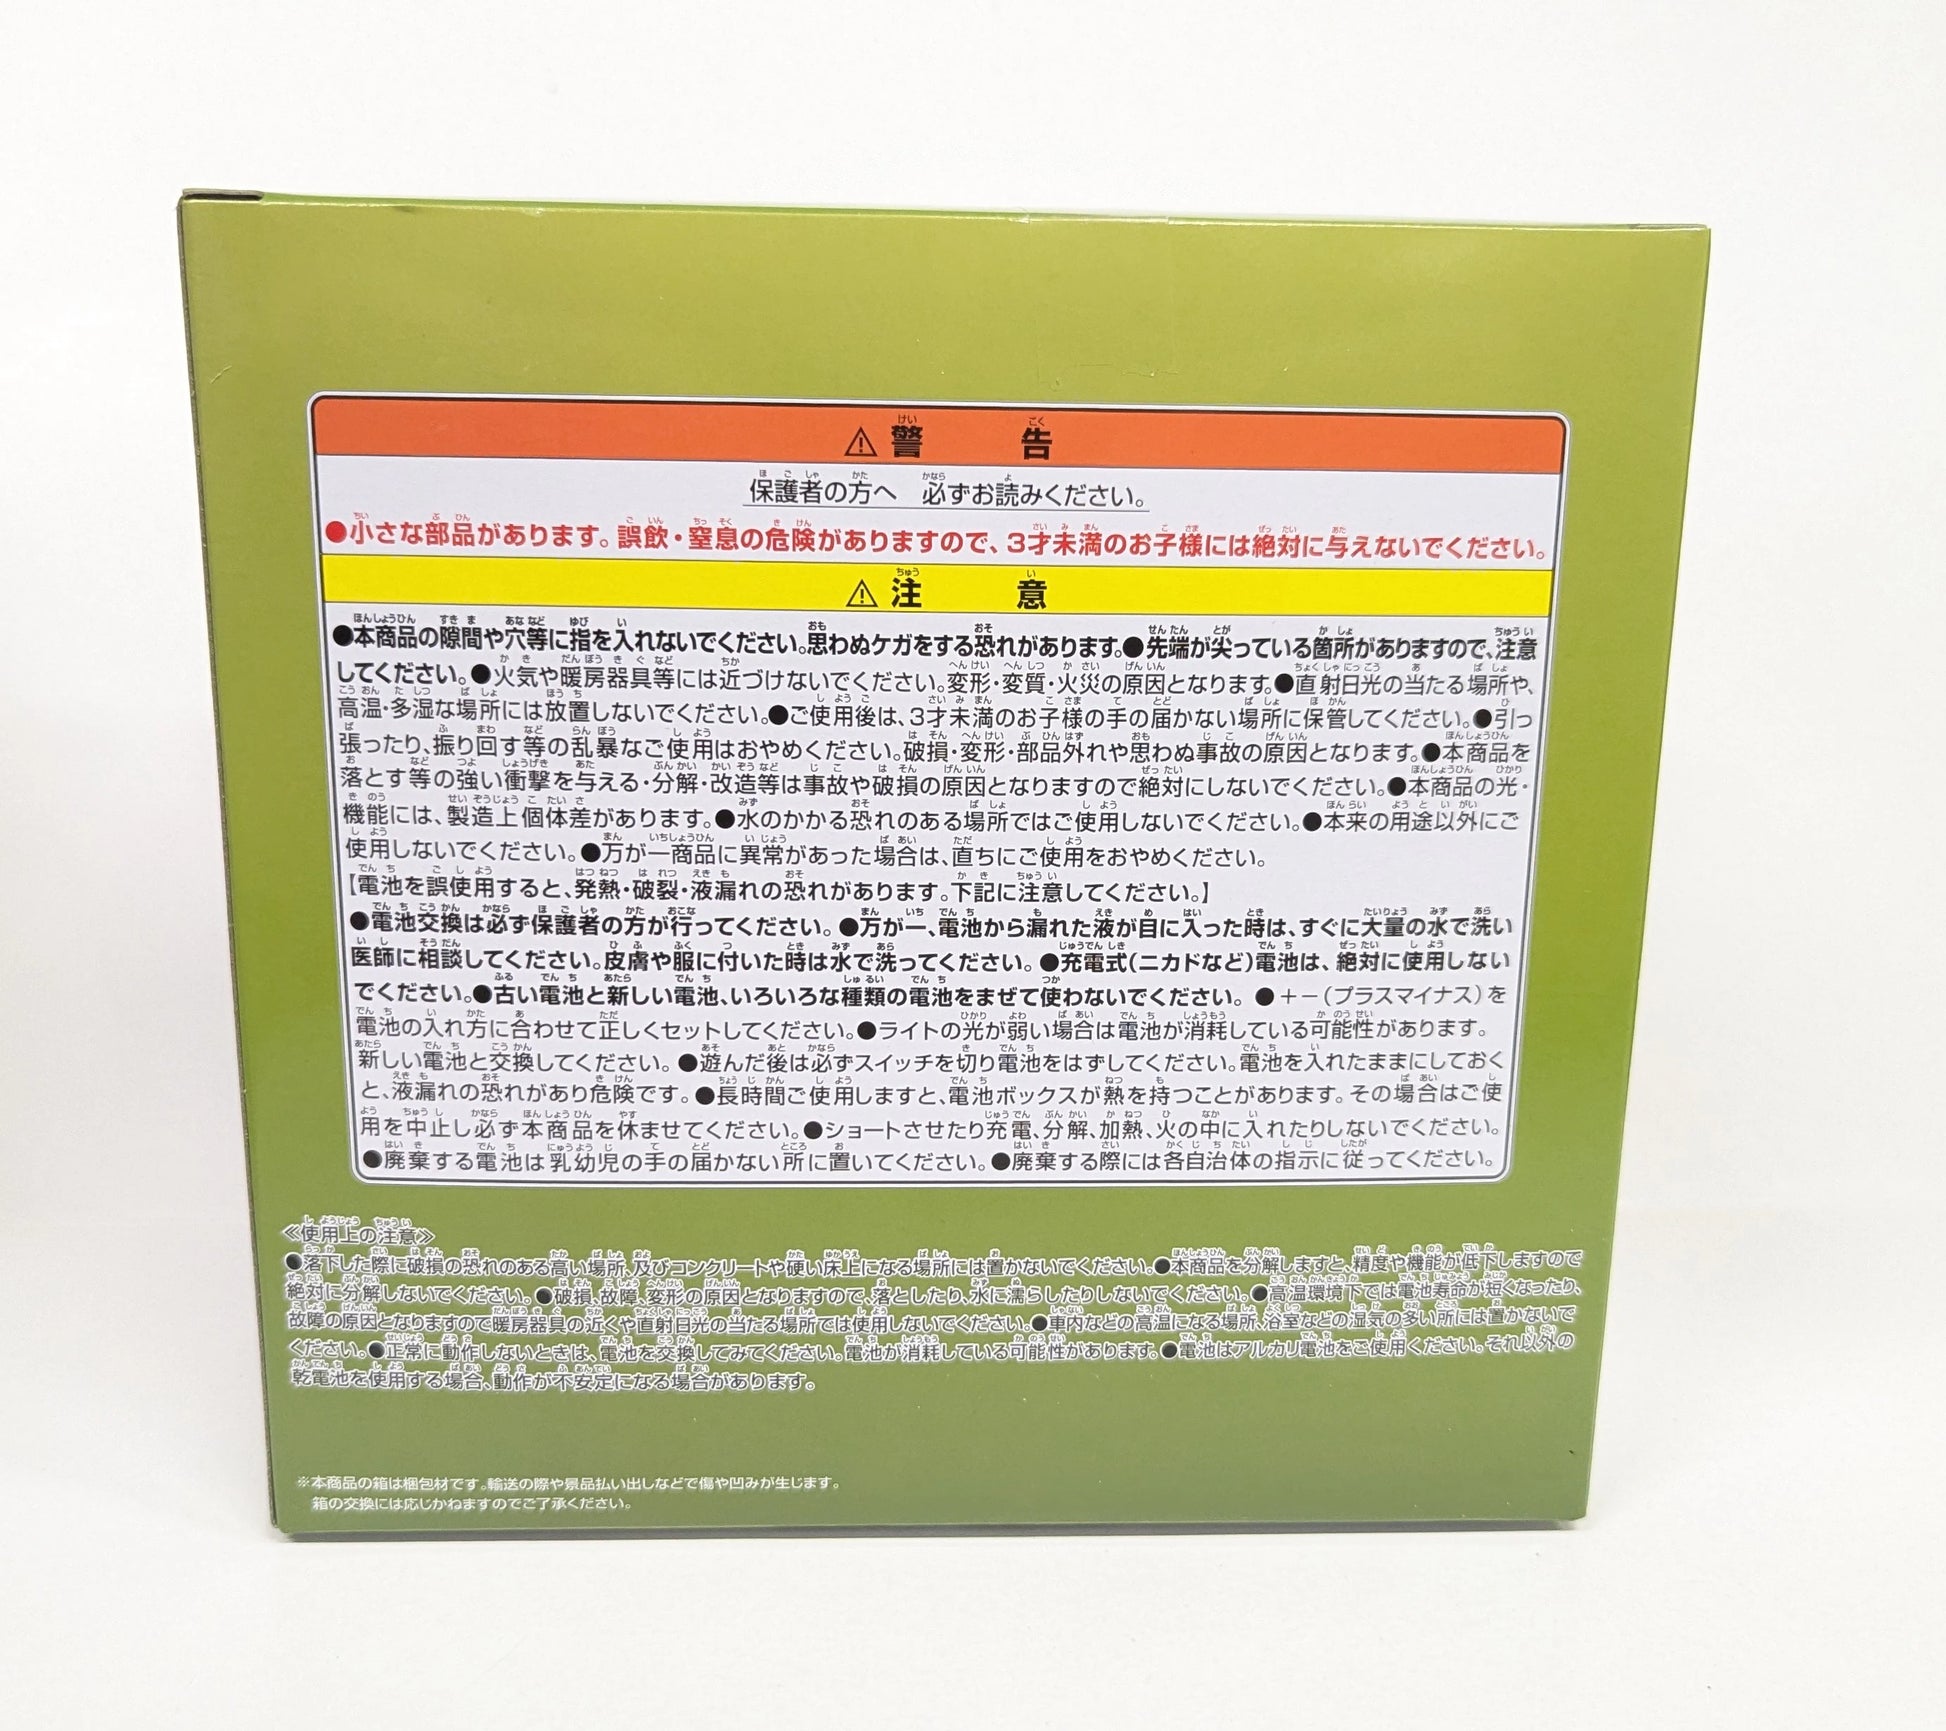 ⚠ 警告
保護者の方へ 必ずお読みください。
●小さな部品があります。誤飲・窒息の危険がありますので、3才未満のお子様には絶対に与えないでください。
⚠ 注意
●本商品の隙間や穴等に指を入れないでください。思わぬケガをする恐れがあります。●先端が尖っている箇所がありますので、注意
してください。●火気や暖房器具等には近づけないでください。変形・変質・火災の原因となります。●直射日光の当たる場所や、
高温・多湿な場所には放置しないでください。●ご使用後は、3才未満のお子様の手の届かない場所に保管してください。●引っ
張ったり、振り回す等の乱暴なご使用はおやめください。破損・変形・部品外れや思わぬ事故の原因となります。●本商品を
落とす等の強い衝撃を与える・分解・改造等は事故や破損の原因となりますので絶対にしないでください。●本商品の光・
機能には、製造上個体差があります。●水のかかる恐れのある場所ではご使用しないでください。●本来の用途以外にご
使用しないでください。●万が一商品に異常があった場合は、直ちにご使用をおやめください。
【電池を誤使用すると、発熱・破裂・液漏れの恐れがあります。下記に注意してください。】
●電池交換は必ず保護者の方が行ってください。●万が一、電池から漏れた液が目に入った時は、すぐに大量の水で洗い
医師に相談してください。皮膚や服に付いた時は水で洗ってください。●充電式(ニカドなど)電池は、絶対に使用しない
でください。●古い電池と新しい電池、いろいろな種類の電池をまぜて使わないでください。●+−(プラスマイナス)を
電池の入れ方に合わせて正しくセットしてください。●ライトの光が弱い場合は電池が消耗している可能性があります。
新しい電池と交換してください。●遊んだ後は必ずスイッチを切り電池をはずしてください。電池を入れたままにしておく
と、液漏れの恐れがあり危険です。●長時間ご使用しますと、電池ボックスが熱を持つことがあります。その場合はご使
用を中止し必ず本商品を休ませてください。●ショートさせたり充電、分解、加熱、火の中に入れたりしないでください。
●廃棄する電池は乳幼児の手の届かない所に置いてください。●廃棄する際には各自治体の指示に従ってください。
≪使用上の注意≫
●落下した際に破損の恐れのある高い場所、及びコンクリートや硬い床上になる場所には置かないでください。●本商品を分解しますと、精度や機能が低下しますので
絶対に分解しないでください。●破損、故障、変形の原因となりますので、落としたり、水に濡らしたりしないでください。●高温環境下では電池寿命が短くなったり、
故障の原因となりますので暖房器具の近くや直射日光の当たる場所では使用しないでください。●車内などの高温になる場所、浴室などの湿気の多い所には置かないで
ください。●正常に動作しないときは、電池を交換してみてください。電池が消耗している可能性があります。●電池はアルカリ電池をご使用ください。それ以外の
乾電池を使用する場合、動作が不安定になる場合があります。
※本商品の箱は梱包材です。輸送の際や景品払い出しなどで傷や凹みが生じます。
箱の交換には応じかねますのでご了承ください。